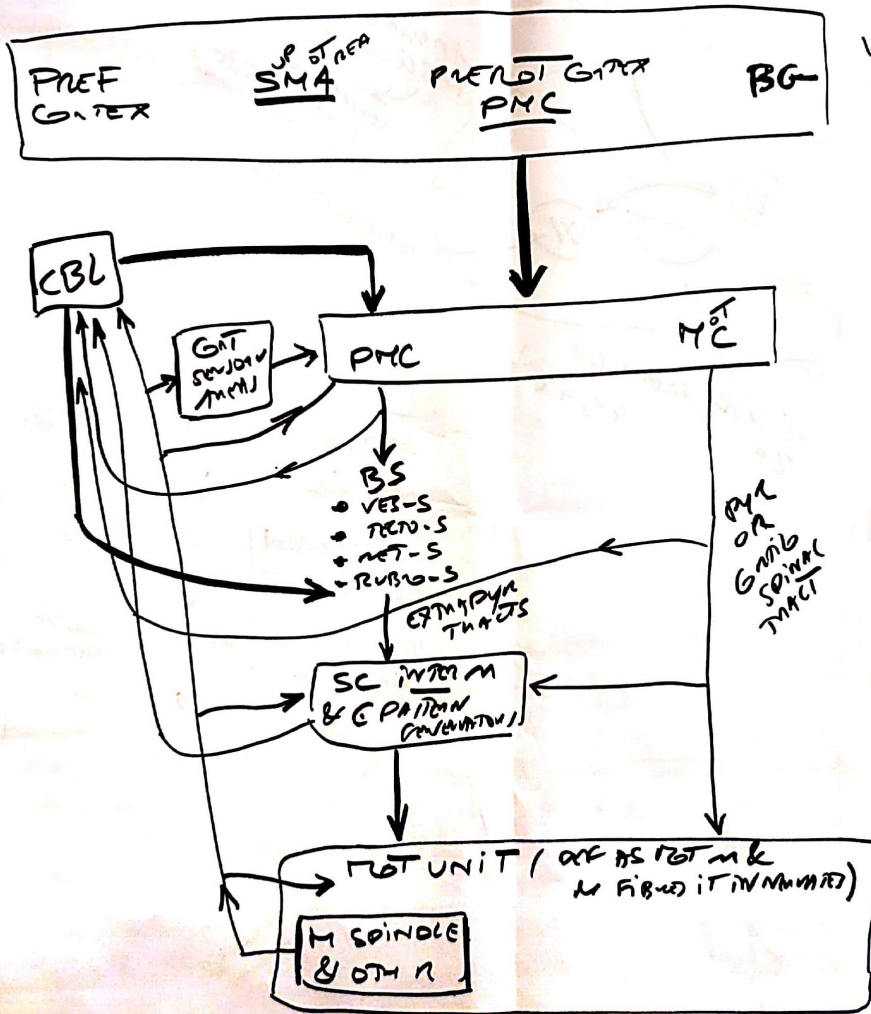 PREF
CORTEX
SUP MOT AREA
SMA
PREMOT CORTEX
PMC
BG
CBL
CORT
SENSORY
AREAS
PMC
MOT C
BS
• VES-S
• TECTO-S
• RET-S
• RUBRO-S
EXTRAPYR
TRACTS
PYR
OR
CORTICO
SPINAL
TRACT
SC INTERN
& C PATTERN
GENERATORS
MOT UNIT (DEF AS MOT N &
M FIBRES IT INNERVATES)
M SPINDLE
& OTH R